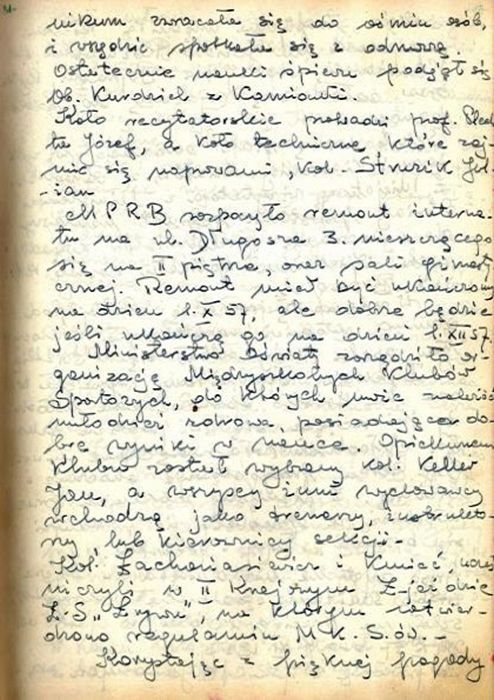 nikum zwracała się do ośmiu osób,
i wszędzie spotkała się z odmową.
Ostatecznie nauki śpiewu podjął się
Ob. Kurdziel z Kamionki.
Koło recytatorskie prowadzi prof.
Józef, a koło techniczne, które zaj-
mie się naprawami, kol. Struzik Jul-
ian
MPRB rozpoczęło remont interna-
tu na ul. Długosza 3. mieszczącego
się na II piętrze, oraz sali gimnasty
cznej. Remont miał być ukończony
na dzień 1.X 57, ale dobrze będzie
jeśli ukończą go na dzień 1.XII 57.
Ministerstwo Oświaty zarządziło or
ganizację Międzyszkolnych Klubów
Sportowych, do których może należeć
młodzież zdrowa, posiadająca do-
bre wyniki w nauce. Opiekunem
Klubu został wybrany kol. Keller
Jan, a wszyscy inni wychowawcy
wchodzą jako trenerzy, instrukto-
rzy lub kierownicy sekcji.
Kol. Zachariasiewicz i Kmieć ucze
niczyli w II Krajowym Zjeździe
Z.S. "Zryw", na którym zatwier-
dzono regulamin M.K.S.ów. -
Korzystając z pięknej pogody